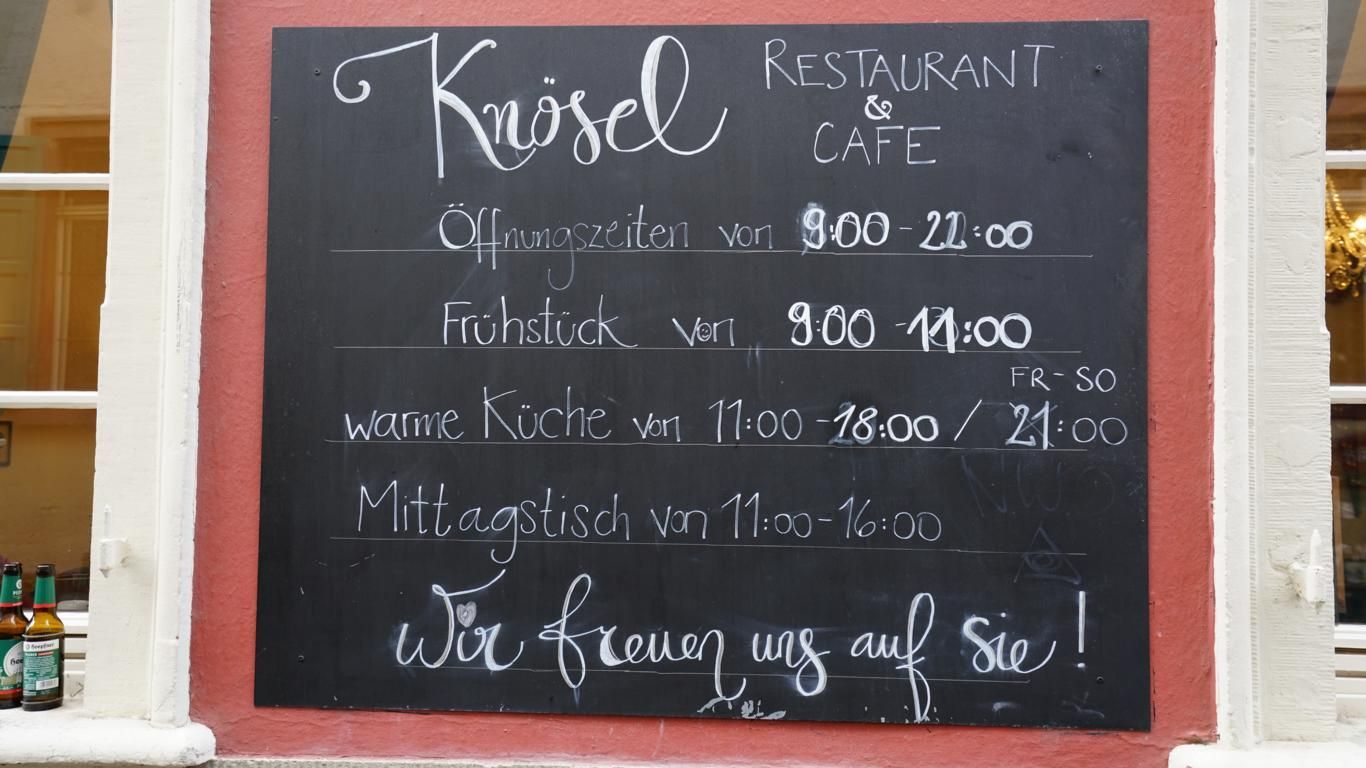 Knösel
RESTAURANT
&
CAFE
Öffnungszeiten von 9:00 - 22:00
Frühstück von 9:00 - 11:00
FR - SO
warme Küche von 11:00 - 18:00 / 21:00
Mittagstisch von 11:00 - 16:00
Wir freuen uns auf Sie!